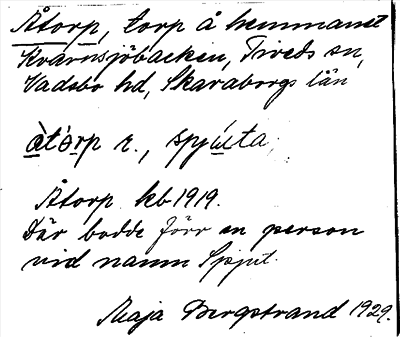 Åtorp, torp å hemmanet
Kvarnsjöbacken, Tiveds sn,
Vadsbo hd, Skaraborgs län
åtòrp r., spjúta,
Åtorp kb 1919.
Där bodde förr en person
vid namn Spjut.
Maja Bergstrand 1929.